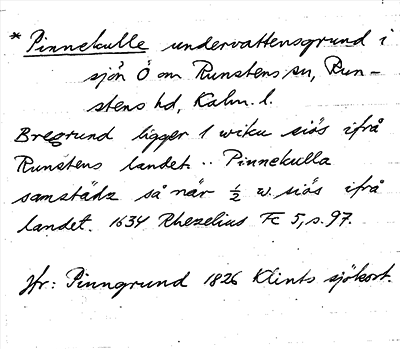 * Pinnekulle undervattensgrund i
sjön Ö om Runstens sn, Run-
stens hd, Kalm. l.
Bregrund ligger 1 wiku siös ifrå
Runstens landet .. Pinnekulla
samstädz så när ½ w. siös ifrå
landet. 1634 Rhezelius Fc 5, s. 97.
Jfr: Pinngrund 1826 Klints sjökort.